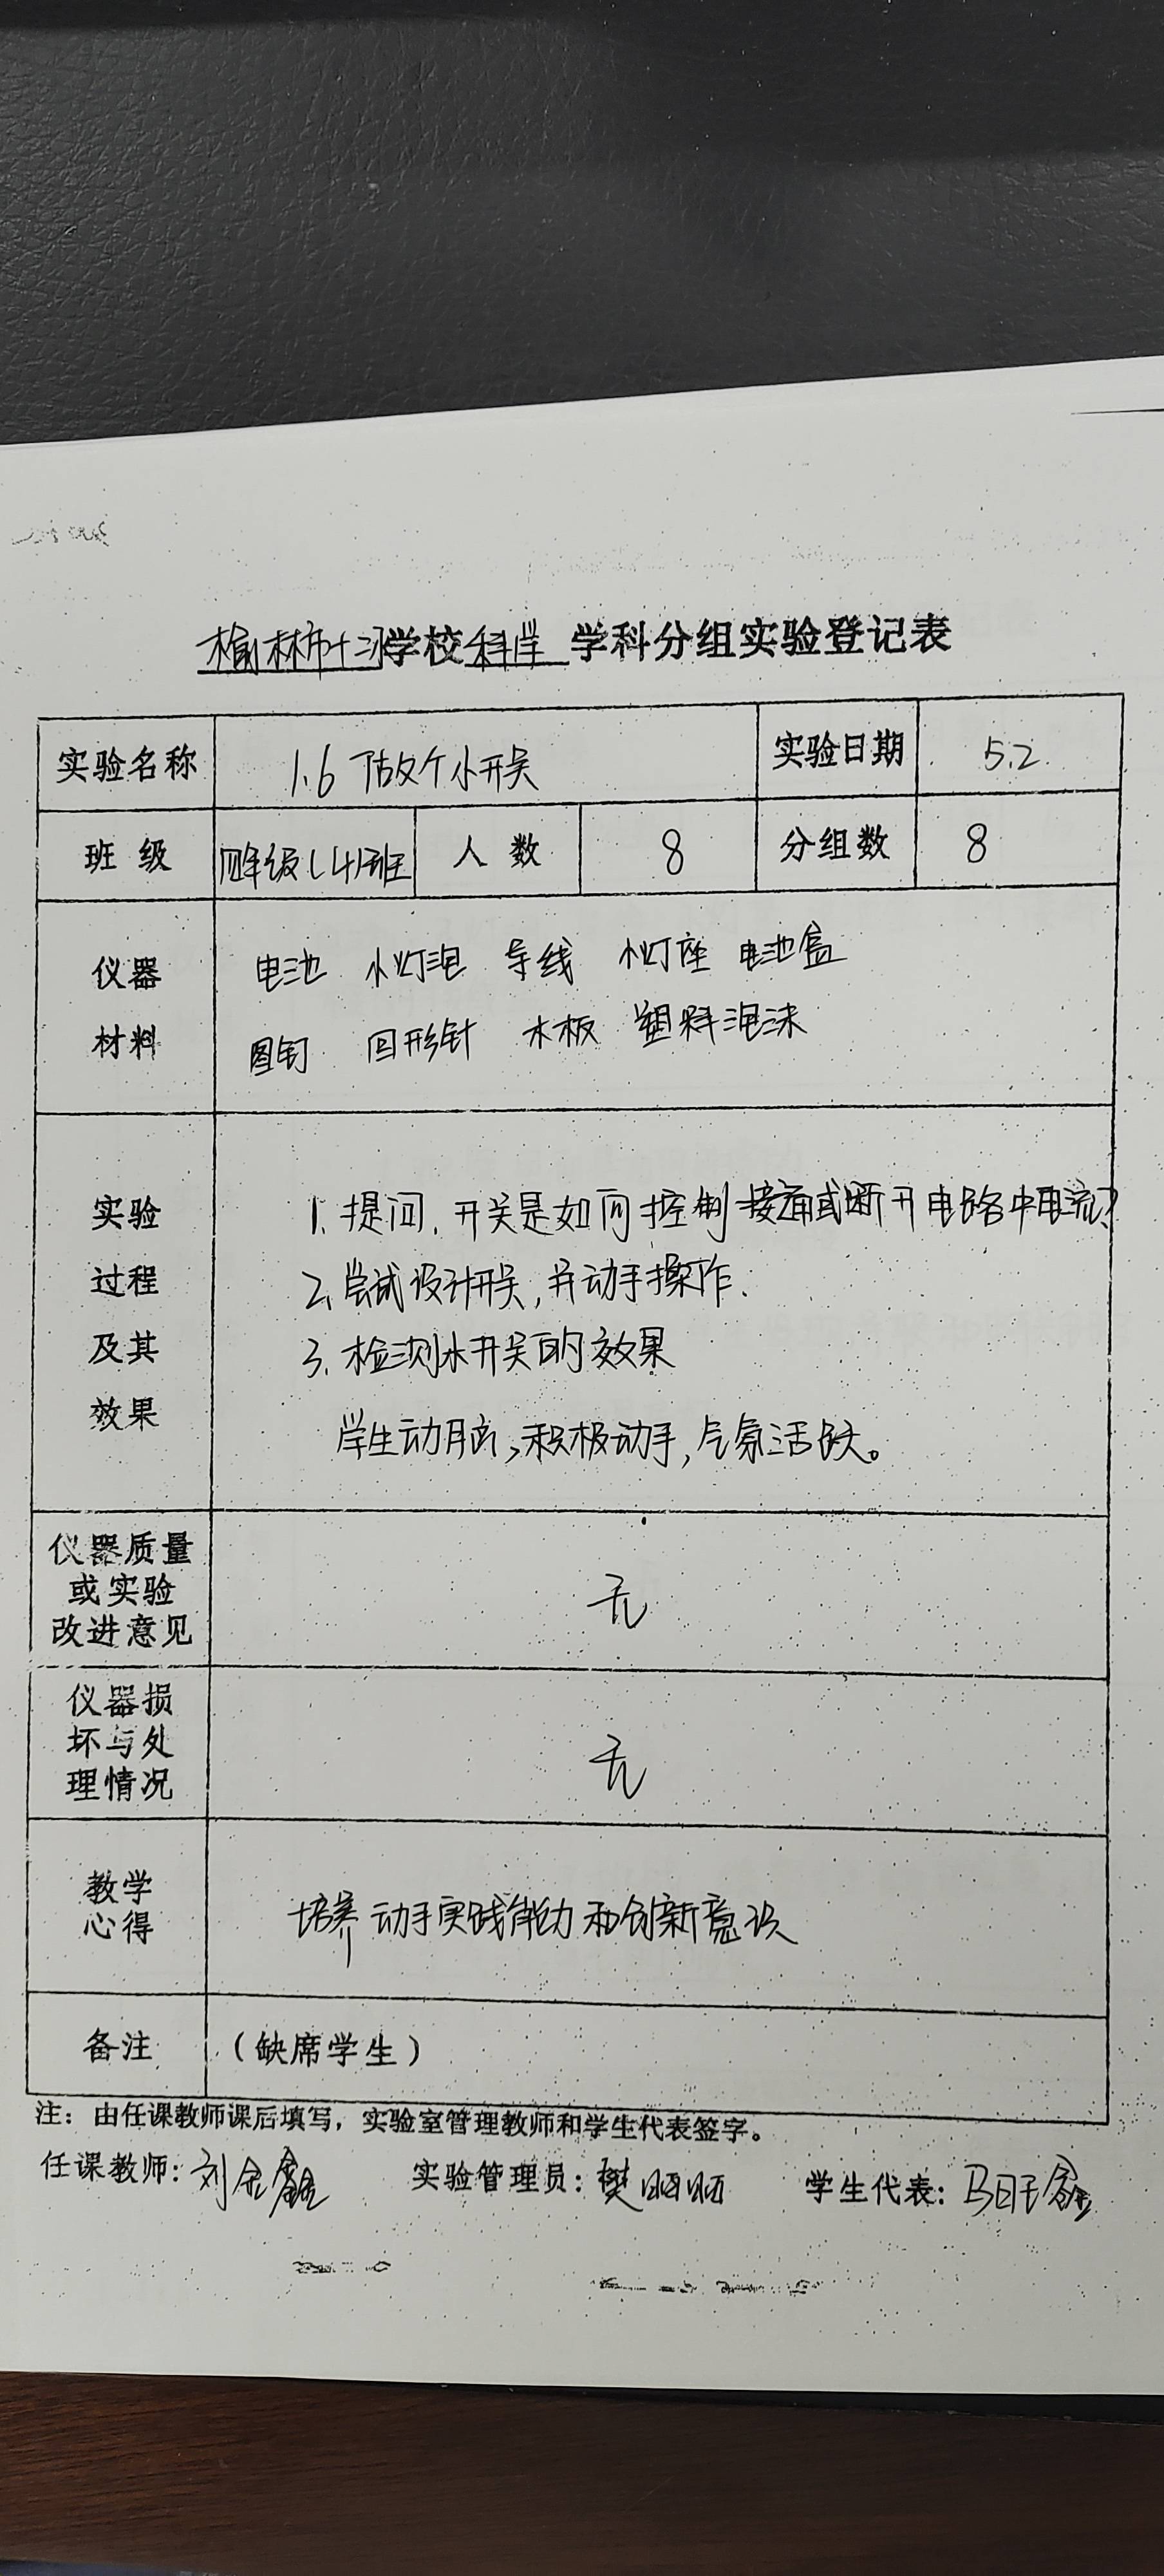 榆林市十三小学校科学 学科分组实验登记表
实验名称 1.6 做个小开关 实验日期 5.2.
班级 四年级(4)班 人数 8 分组数 8
仪器 电池 小灯泡 导线 小灯座 电池盒
材料 图钉 回形针 木板 塑料泡沫
实验 1. 提问,开关是如何控制接通或断开电路中电流?
过程 2. 尝试设计开关,并动手操作.
及其 3. 检测小开关的效果
效果 学生动脑,积极动手,气氛活跃。
仪器质量
或实验 无
改进意见
仪器损
坏与处 无
理情况
教学
心得 培养动手实践能力和创新意识
备注 (缺席学生)
注:由任课教师课后填写,实验室管理教师和学生代表签字。
任课教师:刘金鑫 实验管理员:樊 学生代表:马